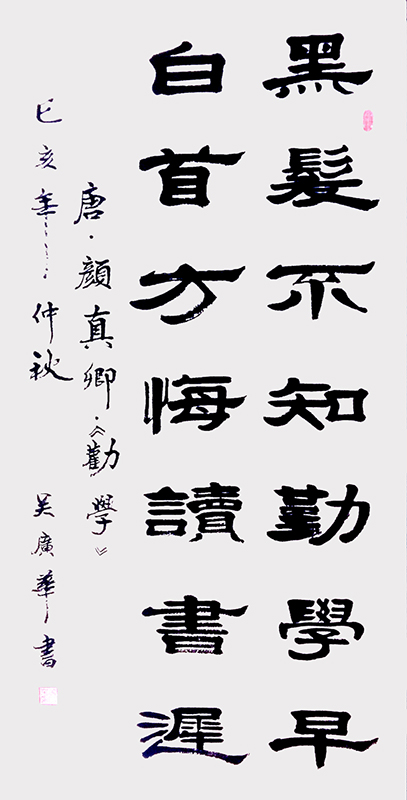 黑髮不知勤學早
白首方悔讀書遲
唐·顔真卿·《勸學》
己亥年仲秋 吴廣華書